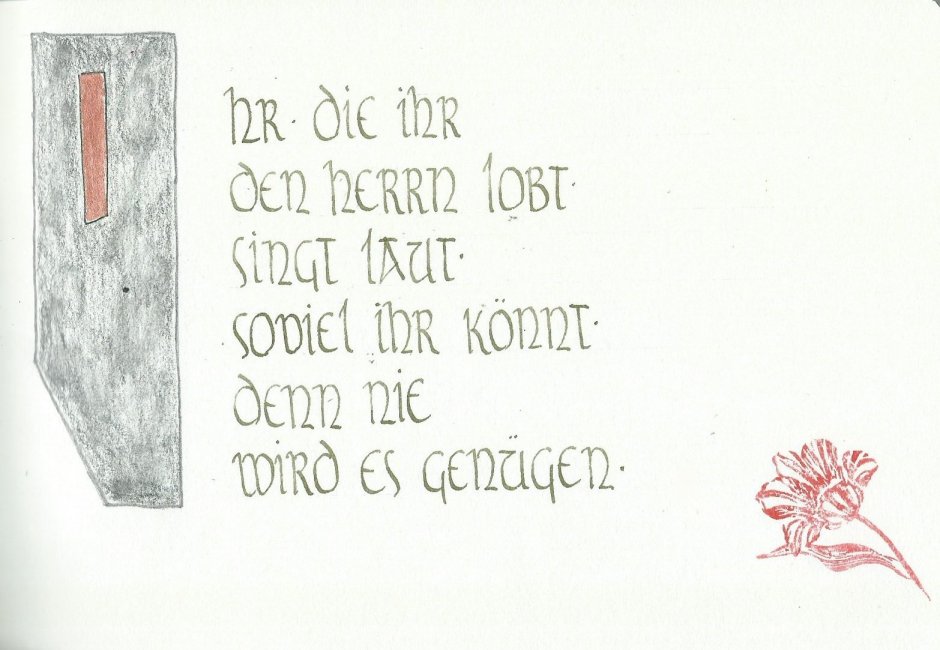 Ihr · die ihr
den Herrn lobt ·
singt laut ·
soviel ihr könnt ·
denn nie
wird es genügen ·